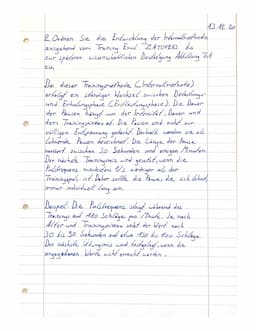 13.12.20
2. Ordnen Sie die Entwicklung der Intervallmethode
ausgehend vom Training Emil ZATOPEKS bis
zur späteren wissenschaftlichen Bestätigung Abbildung
zu.
Bei dieser Trainingsmethode (Intervallmethode)
erfolgt ein ständiger Wechsel zwischen Belastungs-
und Erholungsphase (Entlastungsphase). Die Dauer
der Pausen hängt von der Intensität, Dauer und
dem Trainingsniveau ab. Die Pausen sind nicht zur
völligen Entspannung gedacht. Deshalb werden sie als
lohnende Pausen bezeichnet. Die Länge der Pause
variiert zwischen 30 Sekunden und einigen Minuten.
Der nächste Trainingsreiz wird gesetzt, wenn die
Pulsfrequenz mindestens 1/3 niedriger als der
Trainingspuls ist. Daher sollte die Pause, die sich lohnt,
immer individuell lang sein.
Beispiel: Die Pulsfrequenz steigt während des
Trainings auf 180 Schläge pro Minute. Je nach
Alter und Trainingsniveau sinkt der Wert nach
30 bis 90 Sekunden auf etwa 120 bis 130 Schläge.
Der nächste Übungsreiz wird festgelegt, wenn die
angegebenen Werte nicht erreicht werden.